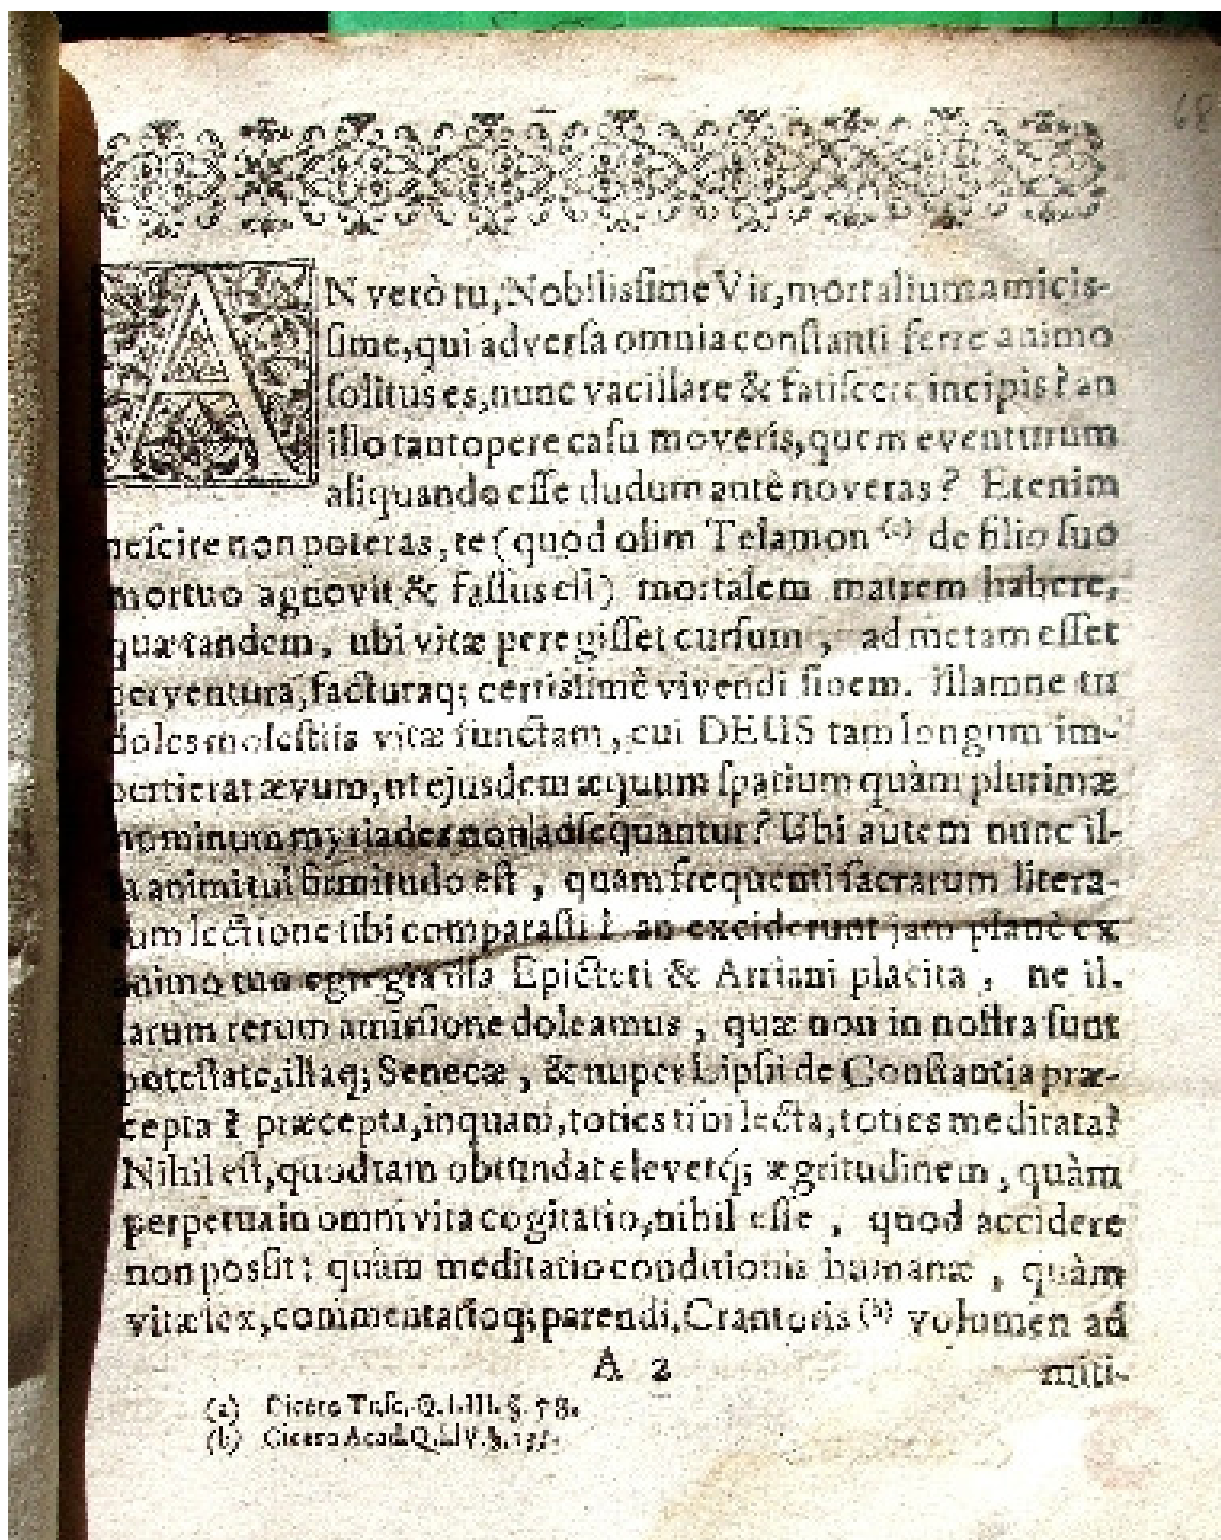 68
AN verò tu, Nobilissime Vir, mortalium amicis-
sime, qui adversa omnia constanti ferre animo
solitus es, nunc vacillare & fatiscere incipis? an
illo tantopere casu moveris, quem eventurum
aliquando esse dudum antè noveras? Etenim
nescire non poteras, te (quod olim Telamon (a) de filio suo
mortuo agnovit & fassus est) mortalem matrem habere,
quæ tandem, ubi vitæ peregisset cursum, ad metam esset
perventura, facturaq; certissimè vivendi finem. Illamne tu
doles molestiis vitæ functam, cui DEUS tam longum im-
pertierat ævum, ut ejusdem æquum spatium quàm plurimæ
hominum myriades non adsequantur? Ubi autem nunc il-
la animi tui firmitudo est, quam frequenti sacrarum litera-
rum lectione tibi comparasti? an exciderunt jam planè ex
animo tuo egregia illa Epicteti & Arriani placita, ne il-
larum rerum amissione doleamus, quæ non in nostra sunt
potestate, illaq; Senecæ, & nuper Lipsii de Constantia præ-
cepta? præcepta, inquam, toties tibi lecta, toties meditata?
Nihil est, quod tam obtundat elevetq; ægritudinem, quàm
perpetua in omni vita cogitatio, nihil esse, quod accidere
non possit: quàm meditatio conditionis humanæ, quàm
vitæ lex, commentatioq; parendi. Crantoris (b) volumen ad
A 2
miti-
(a) Cicero Tusc. Q. l. III. §.
(b) Cicero Acad. Q. l. IV. §.